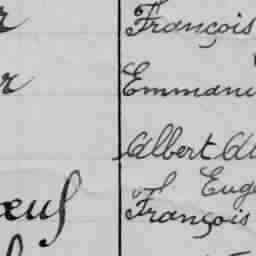 r François
r Emmanu
Albert Al
Eug
œuf François